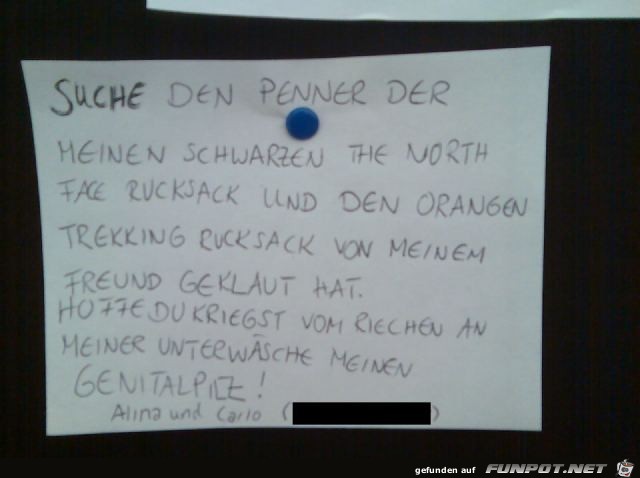 SUCHE DEN PENNER DER
MEINEN SCHWARZEN THE NORTH
FACE RUCKSACK UND DEN ORANGEN
TREKKING RUCKSACK VON MEINEM
FREUND GEKLAUT HAT.
HOFFE DU KRIEGST VOM RIECHEN AN
MEINER UNTERWÄSCHE MEINEN
GENITALPILZ!
Alina und Carlo ( )
gefunden auf FUNPOT.NET